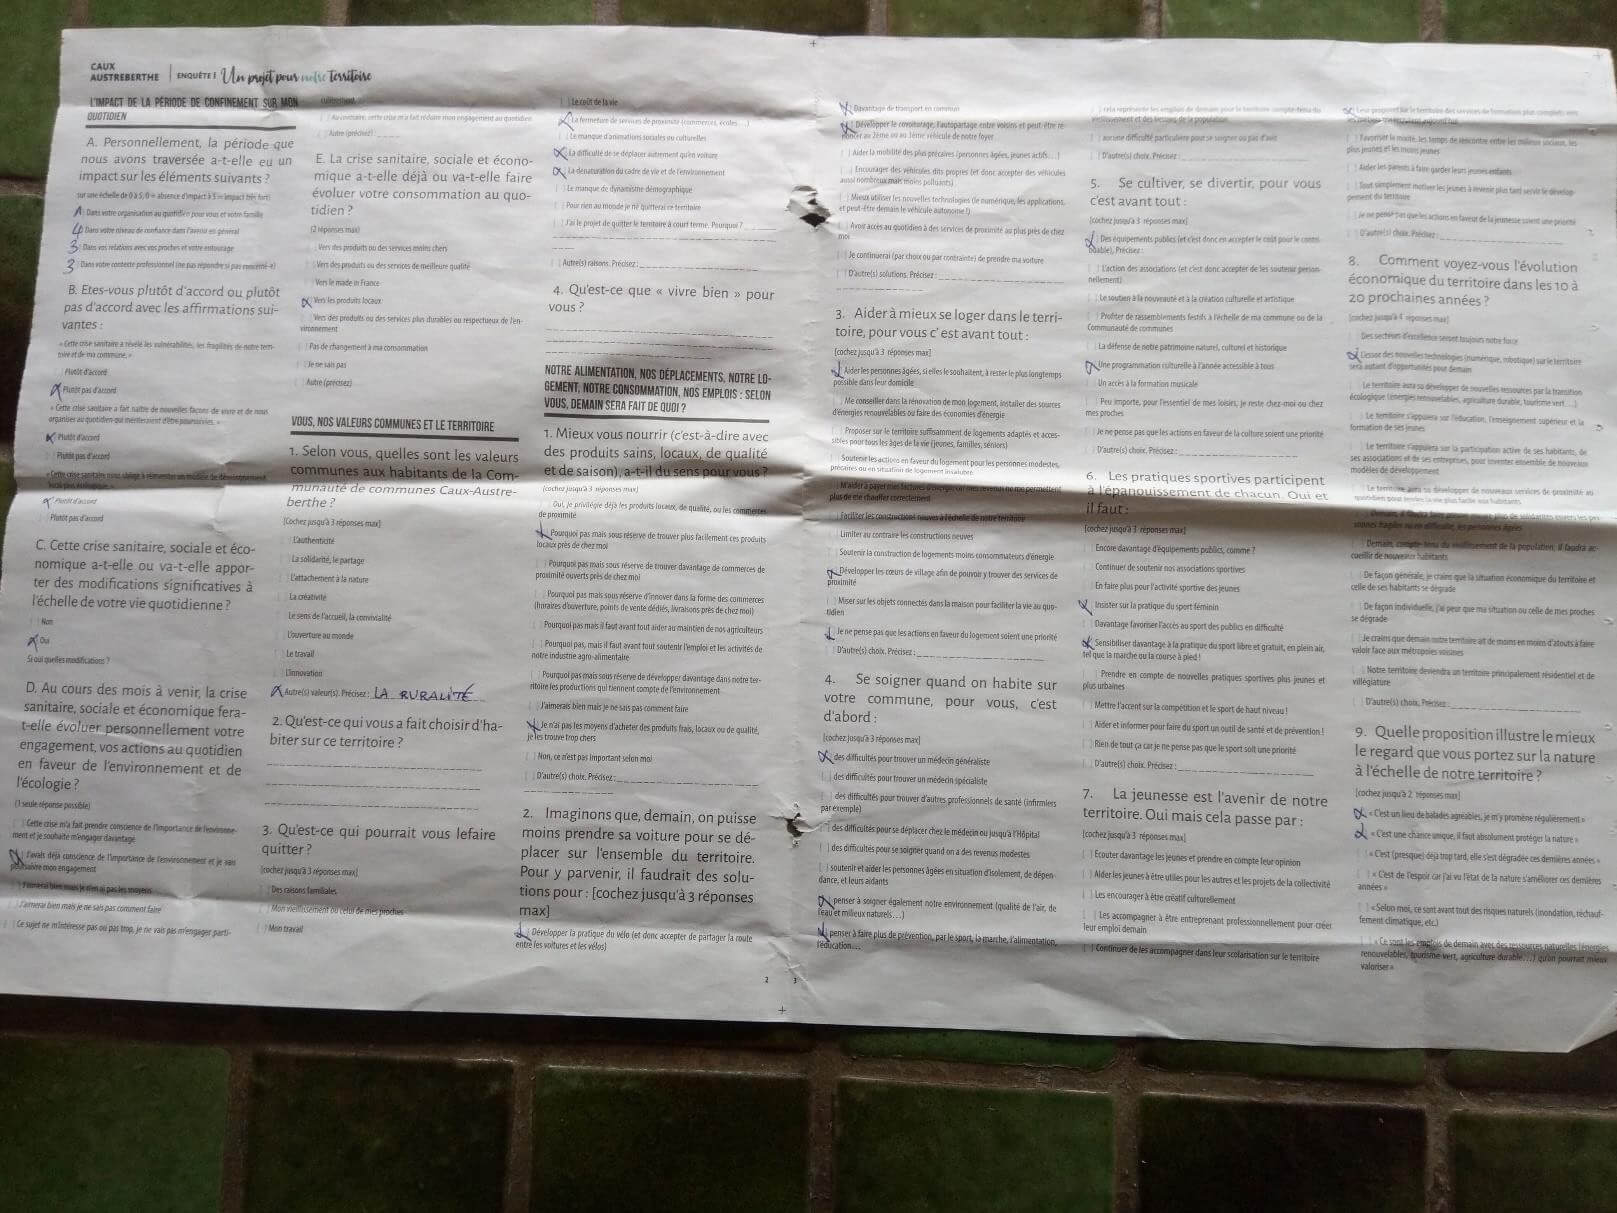 CAUX
AUSTREBERTHE
ENQUÊTE
Un projet pour notre Territoire
L'IMPACT DE LA PÉRIODE DE CONFINEMENT SUR MON
QUOTIDIEN
A. Personnellement, la période que
nous avons traversée a-t-elle eu un
impact sur les éléments suivants ?
sur une échelle de 0 à 5, 0 = absence d'impact à 5 = impact très fort)
Dans votre organisation au quotidien pour vous et votre famille
4 Dans votre niveau de confiance dans l'avenir en général
3 Dans vos relations avec vos proches et votre entourage
3 Dans votre contexte professionnel (ne pas répondre si pas concerné-e)
B. Etes-vous plutôt d'accord ou plutôt
pas d'accord avec les affirmations sui-
vantes :
« Cette crise sanitaire a révélé les vulnérabilités, les fragilités de notre terri-
toire et de ma commune. »
Plutôt d'accord
Plutôt pas d'accord
« Cette crise sanitaire a fait naître de nouvelles façons de vivre et de nous
organiser au quotidien qui mériteraient d'être poursuivies. »
Plutôt d'accord
Plutôt pas d'accord
Plutôt d'accord
Plutôt pas d'accord
C. Cette crise sanitaire, sociale et éco-
nomique a-t-elle ou va-t-elle appor-
ter des modifications significatives à
l'échelle de votre vie quotidienne ?
Non
Oui
Si oui quelles modifications ?
D. Au cours des mois à venir, la crise
sanitaire, sociale et économique fera-
t-elle évoluer personnellement votre
engagement, vos actions au quotidien
en faveur de l'environnement et de
l'écologie ?
(1 seule réponse possible)
Cette crise m'a fait prendre conscience de l'importance de l'environne-
ment et je souhaite m'engager davantage
J'avais déjà conscience de l'importance de l'environnement et je vais
poursuivre mon engagement
J'aimerai bien mais je n'en ai pas les moyens
J'aimerai bien mais je ne sais pas comment faire
Ce sujet ne m'intéresse pas ou pas trop, je ne vais pas m'engager parti-
culièrement
Au contraire, cette crise m'a fait réduire mon engagement au quotidien
Autre (précisez) :
E. La crise sanitaire, sociale et écono-
mique a-t-elle déjà ou va-t-elle faire
évoluer votre consommation au quo-
tidien ?
(2 réponses max)
Vers des produits ou des services moins chers
Vers des produits ou des services de meilleure qualité
Vers le made in France
Vers les produits locaux
Vers des produits ou des services plus durables ou respectueux de l'en-
vironnement
Pas de changement à ma consommation
Je ne sais pas
Autre (précisez)
VOUS, NOS VALEURS COMMUNES ET LE TERRITOIRE
1. Selon vous, quelles sont les valeurs
communes aux habitants de la Com-
munauté de communes Caux-Austre-
berthe ?
[Cochez jusqu'à 3 réponses max]
L'authenticité
La solidarité, le partage
L'attachement à la nature
La créativité
Le sens de l'accueil, la convivialité
L'ouverture au monde
Le travail
L'innovation
Autre(s) valeur(s). Précisez : LA RURALITÉ
2. Qu'est-ce qui vous a fait choisir d'ha-
biter sur ce territoire ?
3. Qu'est-ce qui pourrait vous lefaire
quitter ?
[cochez jusqu'à 3 réponses max]
Des raisons familiales
Mon vieillissement ou celui de mes proches
Mon travail
Le coût de la vie
La fermeture de services de proximité (commerces, écoles...)
Le manque d'animations sociales ou culturelles
La difficulté de se déplacer autrement qu'en voiture
La dénaturation du cadre de vie et de l'environnement
Le manque de dynamisme démographique
Pour rien au monde je ne quitterai ce territoire
J'ai le projet de quitter le territoire à court terme. Pourquoi ?
Autre(s) raisons. Précisez :
4. Qu'est-ce que « vivre bien » pour
vous ?
NOTRE ALIMENTATION, NOS DÉPLACEMENTS, NOTRE LO-
GEMENT, NOTRE CONSOMMATION, NOS EMPLOIS : SELON
VOUS, DEMAIN SERA FAIT DE QUOI ?
1. Mieux vous nourrir (c'est-à-dire avec
des produits sains, locaux, de qualité
et de saison), a-t-il du sens pour vous ?
[cochez jusqu'à 3 réponses max]
Oui, je privilégie déjà les produits locaux, de qualité, ou les commerces
de proximité
Pourquoi pas mais sous réserve de trouver plus facilement ces produits
locaux près de chez moi
Pourquoi pas mais sous réserve de trouver davantage de commerces de
proximité ouverts près de chez moi
Pourquoi pas mais sous réserve d'innover dans la forme des commerces
(horaires d'ouverture, points de vente dédiés, livraisons près de chez moi)
Pourquoi pas mais il faut avant tout aider au maintien de nos agriculteurs
Pourquoi pas, mais il faut avant tout soutenir l'emploi et les activités de
notre industrie agro-alimentaire
Pourquoi pas mais sous réserve de développer davantage dans notre ter-
ritoire les productions qui tiennent compte de l'environnement
J'aimerais bien mais je ne sais pas comment faire
Je n'ai pas les moyens d'acheter des produits frais, locaux ou de qualité,
je les trouve trop chers
Non, ce n'est pas important selon moi
D'autre(s) choix. Précisez :
2. Imaginons que, demain, on puisse
moins prendre sa voiture pour se dé-
placer sur l'ensemble du territoire.
Pour y parvenir, il faudrait des solu-
tions pour : [cochez jusqu'à 3 réponses
max]
Développer la pratique du vélo (et donc accepter de partager la route
entre les voitures et les vélos)
2
Davantage de transport en commun
Développer le covoiturage, l'autopartage entre voisins et peut-être re-
noncer au 2ème ou au 3ème véhicule de notre foyer
Aider la mobilité des plus précaires (personnes âgées, jeunes actifs...)
Encourager des véhicules dits propres (et donc accepter des véhicules
aussi nombreux mais moins polluants)
Mieux utiliser les nouvelles technologies (le numérique, les applications,
et peut-être demain le véhicule autonome !)
Avoir accès au quotidien à des services de proximité au plus près de chez
moi
Je continuerai (par choix ou par contrainte) de prendre ma voiture
D'autre(s) solutions. Précisez :
3. Aider à mieux se loger dans le terri-
toire, pour vous c'est avant tout :
[cochez jusqu'à 3 réponses max]
Aider les personnes âgées, si elles le souhaitent, à rester le plus longtemps
possible dans leur domicile
Me conseiller dans la rénovation de mon logement, installer des sources
d'énergies renouvelables ou faire des économies d'énergie
Proposer sur le territoire suffisamment de logements adaptés et acces-
sibles pour tous les âges de la vie (jeunes, familles, séniors)
Soutenir les actions en faveur du logement pour les personnes modestes,
précaires ou en situation de logement insalubre
M'aider à payer mes factures d'énergie, car mes revenus ne me permettent
plus de me chauffer correctement
Faciliter les constructions neuves à l'échelle de notre territoire
Limiter au contraire les constructions neuves
Soutenir la construction de logements moins consommateurs d'énergie
Développer les cœurs de village afin de pouvoir y trouver des services de
proximité
Miser sur les objets connectés dans la maison pour faciliter la vie au quo-
tidien
Je ne pense pas que les actions en faveur du logement soient une priorité
D'autre(s) choix. Précisez :
4. Se soigner quand on habite sur
votre commune, pour vous, c'est
d'abord :
[cochez jusqu'à 3 réponses max]
des difficultés pour trouver un médecin généraliste
des difficultés pour trouver un médecin spécialiste
des difficultés pour trouver d'autres professionnels de santé (infirmiers
par exemple)
des difficultés pour se déplacer chez le médecin ou jusqu'à l'Hôpital
des difficultés pour se soigner quand on a des revenus modestes
soutenir et aider les personnes âgées en situation d'isolement, de dépen-
dance, et leurs aidants
penser à soigner également notre environnement (qualité de l'air, de
l'eau et milieux naturels...)
penser à faire plus de prévention, par le sport, la marche, l'alimentation,
l'éducation...
3
cela représente les emplois de demain pour le territoire compte-tenu du
vieillissement et des besoins de la population
aucune difficulté particulière pour se soigner ou pas d'avis
D'autre(s) choix. Précisez :
5. Se cultiver, se divertir, pour vous
c'est avant tout :
[cochez jusqu'à 3 réponses max]
Des équipements publics (et c'est donc en accepter le coût pour le contri-
buable). Préciser :
L'action des associations (et c'est donc accepter de les soutenir person-
nellement)
Le soutien à la nouveauté et à la création culturelle et artistique
Profiter de rassemblements festifs à l'échelle de ma commune ou de la
Communauté de communes
La défense de notre patrimoine naturel, culturel et historique
Une programmation culturelle à l'année accessible à tous
Un accès à la formation musicale
Peu importe, pour l'essentiel de mes loisirs, je reste chez-moi ou chez
mes proches
Je ne pense pas que les actions en faveur de la culture soient une priorité
D'autre(s) choix. Précisez :
6. Les pratiques sportives participent
à l'épanouissement de chacun. Oui et
il faut :
[cochez jusqu'à 3 réponses max]
Encore davantage d'équipements publics, comme ?
Continuer de soutenir nos associations sportives
En faire plus pour l'activité sportive des jeunes
Insister sur la pratique du sport féminin
Davantage favoriser l'accès au sport des publics en difficulté
Sensibiliser davantage à la pratique du sport libre et gratuit, en plein air,
tel que la marche ou la course à pied !
Prendre en compte de nouvelles pratiques sportives plus jeunes et
plus urbaines
Mettre l'accent sur la compétition et le sport de haut niveau !
Aider et informer pour faire du sport un outil de santé et de prévention !
Rien de tout ça car je ne pense pas que le sport soit une priorité
D'autre(s) choix. Précisez :
7. La jeunesse est l'avenir de notre
territoire. Oui mais cela passe par :
[cochez jusqu'à 3 réponses max]
Ecouter davantage les jeunes et prendre en compte leur opinion
Aider les jeunes à être utiles pour les autres et les projets de la collectivité
Les encourager à être créatif culturellement
Les accompagner à être entreprenant professionnellement pour créer
leur emploi demain
Continuer de les accompagner dans leur scolarisation sur le territoire
Leur proposer sur le territoire des services de formation plus complets
Favoriser la mixité, les temps de rencontre entre les milieux sociaux, les
plus jeunes et les moins jeunes
Aider les parents à faire garder leurs jeunes enfants
Tout simplement motiver les jeunes à revenir plus tard servir le dévelop-
pement du territoire
Je ne pense pas que les actions en faveur de la jeunesse soient une priorité
D'autre(s) choix. Précisez :
8. Comment voyez-vous l'évolution
économique du territoire dans les 10 à
20 prochaines années ?
[cochez jusqu'à 4 réponses max]
Des secteurs d'excellence seront toujours notre force
L'essor des nouvelles technologies (numérique, robotique) sur le territoire
sera autant d'opportunités pour demain
Le territoire aura su développer de nouvelles ressources par la transition
écologique (énergies renouvelables, agriculture durable, tourisme vert...)
Le territoire s'appuiera sur l'éducation, l'enseignement supérieur et la
formation de ses jeunes
Le territoire s'appuiera sur la participation active de ses habitants, de
ses associations et de ses entreprises, pour inventer ensemble de nouveaux
modèles de développement
Le territoire aura su développer de nouveaux services de proximité au
quotidien pour rendre la vie plus facile aux habitants
Demain, compte-tenu du vieillissement de la population, il faudra ac-
cueillir de nouveaux habitants
De façon générale, je crains que la situation économique du territoire et
celle de ses habitants se dégrade
De façon individuelle, j'ai peur que ma situation ou celle de mes proches
se dégrade
Je crains que demain notre territoire ait de moins en moins d'atouts à faire
valoir face aux métropoles voisines
Notre territoire deviendra un territoire principalement résidentiel et de
villégiature
D'autre(s) choix. Précisez :
9. Quelle proposition illustre le mieux
le regard que vous portez sur la nature
à l'échelle de notre territoire ?
[cochez jusqu'à 2 réponses max]
« C'est un lieu de balades agréables, je m'y promène régulièrement »
« C'est une chance unique, il faut absolument protéger la nature »
« C'est (presque) déjà trop tard, elle s'est dégradée ces dernières années »
« C'est de l'espoir car j'ai vu l'état de la nature s'améliorer ces dernières
années »
« Selon moi, ce sont avant tout des risques naturels (inondation, réchauf-
fement climatique, etc.)
« Ce sont les emplois de demain avec des ressources naturelles (énergies
renouvelables, tourisme vert, agriculture durable...) qu'on pourrait mieux
valoriser »